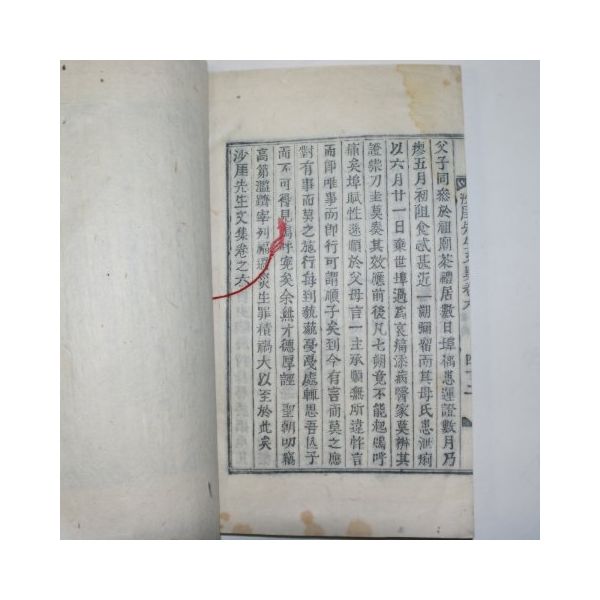 父子同參於祖廟茶禮居數日埠偶患運證數月乃
瘳五月初阻食感甚近一朔彌留而其母氏患泄痢
以六月廿一日棄世埠過爲哀痛添病醫家莫辨其
證柴刀圭莫奏其效應前後凡七朔竟不能起嗚呼
痛矣埠賦性遜順於父母言一主承順無所違忤言
而卽唯事而卽行可謂順子矣到今有言而莫之應
對有事而莫之施行每到藐藐憂憂處輒思吾亡子
而不可得見嗚呼寃矣余無才德厚誣 聖朝叨竊
高第濫躋宰列福過災生罪積禍大以至於此矣
沙厓先生文集卷之六
沙厓先生文集卷六 四十二